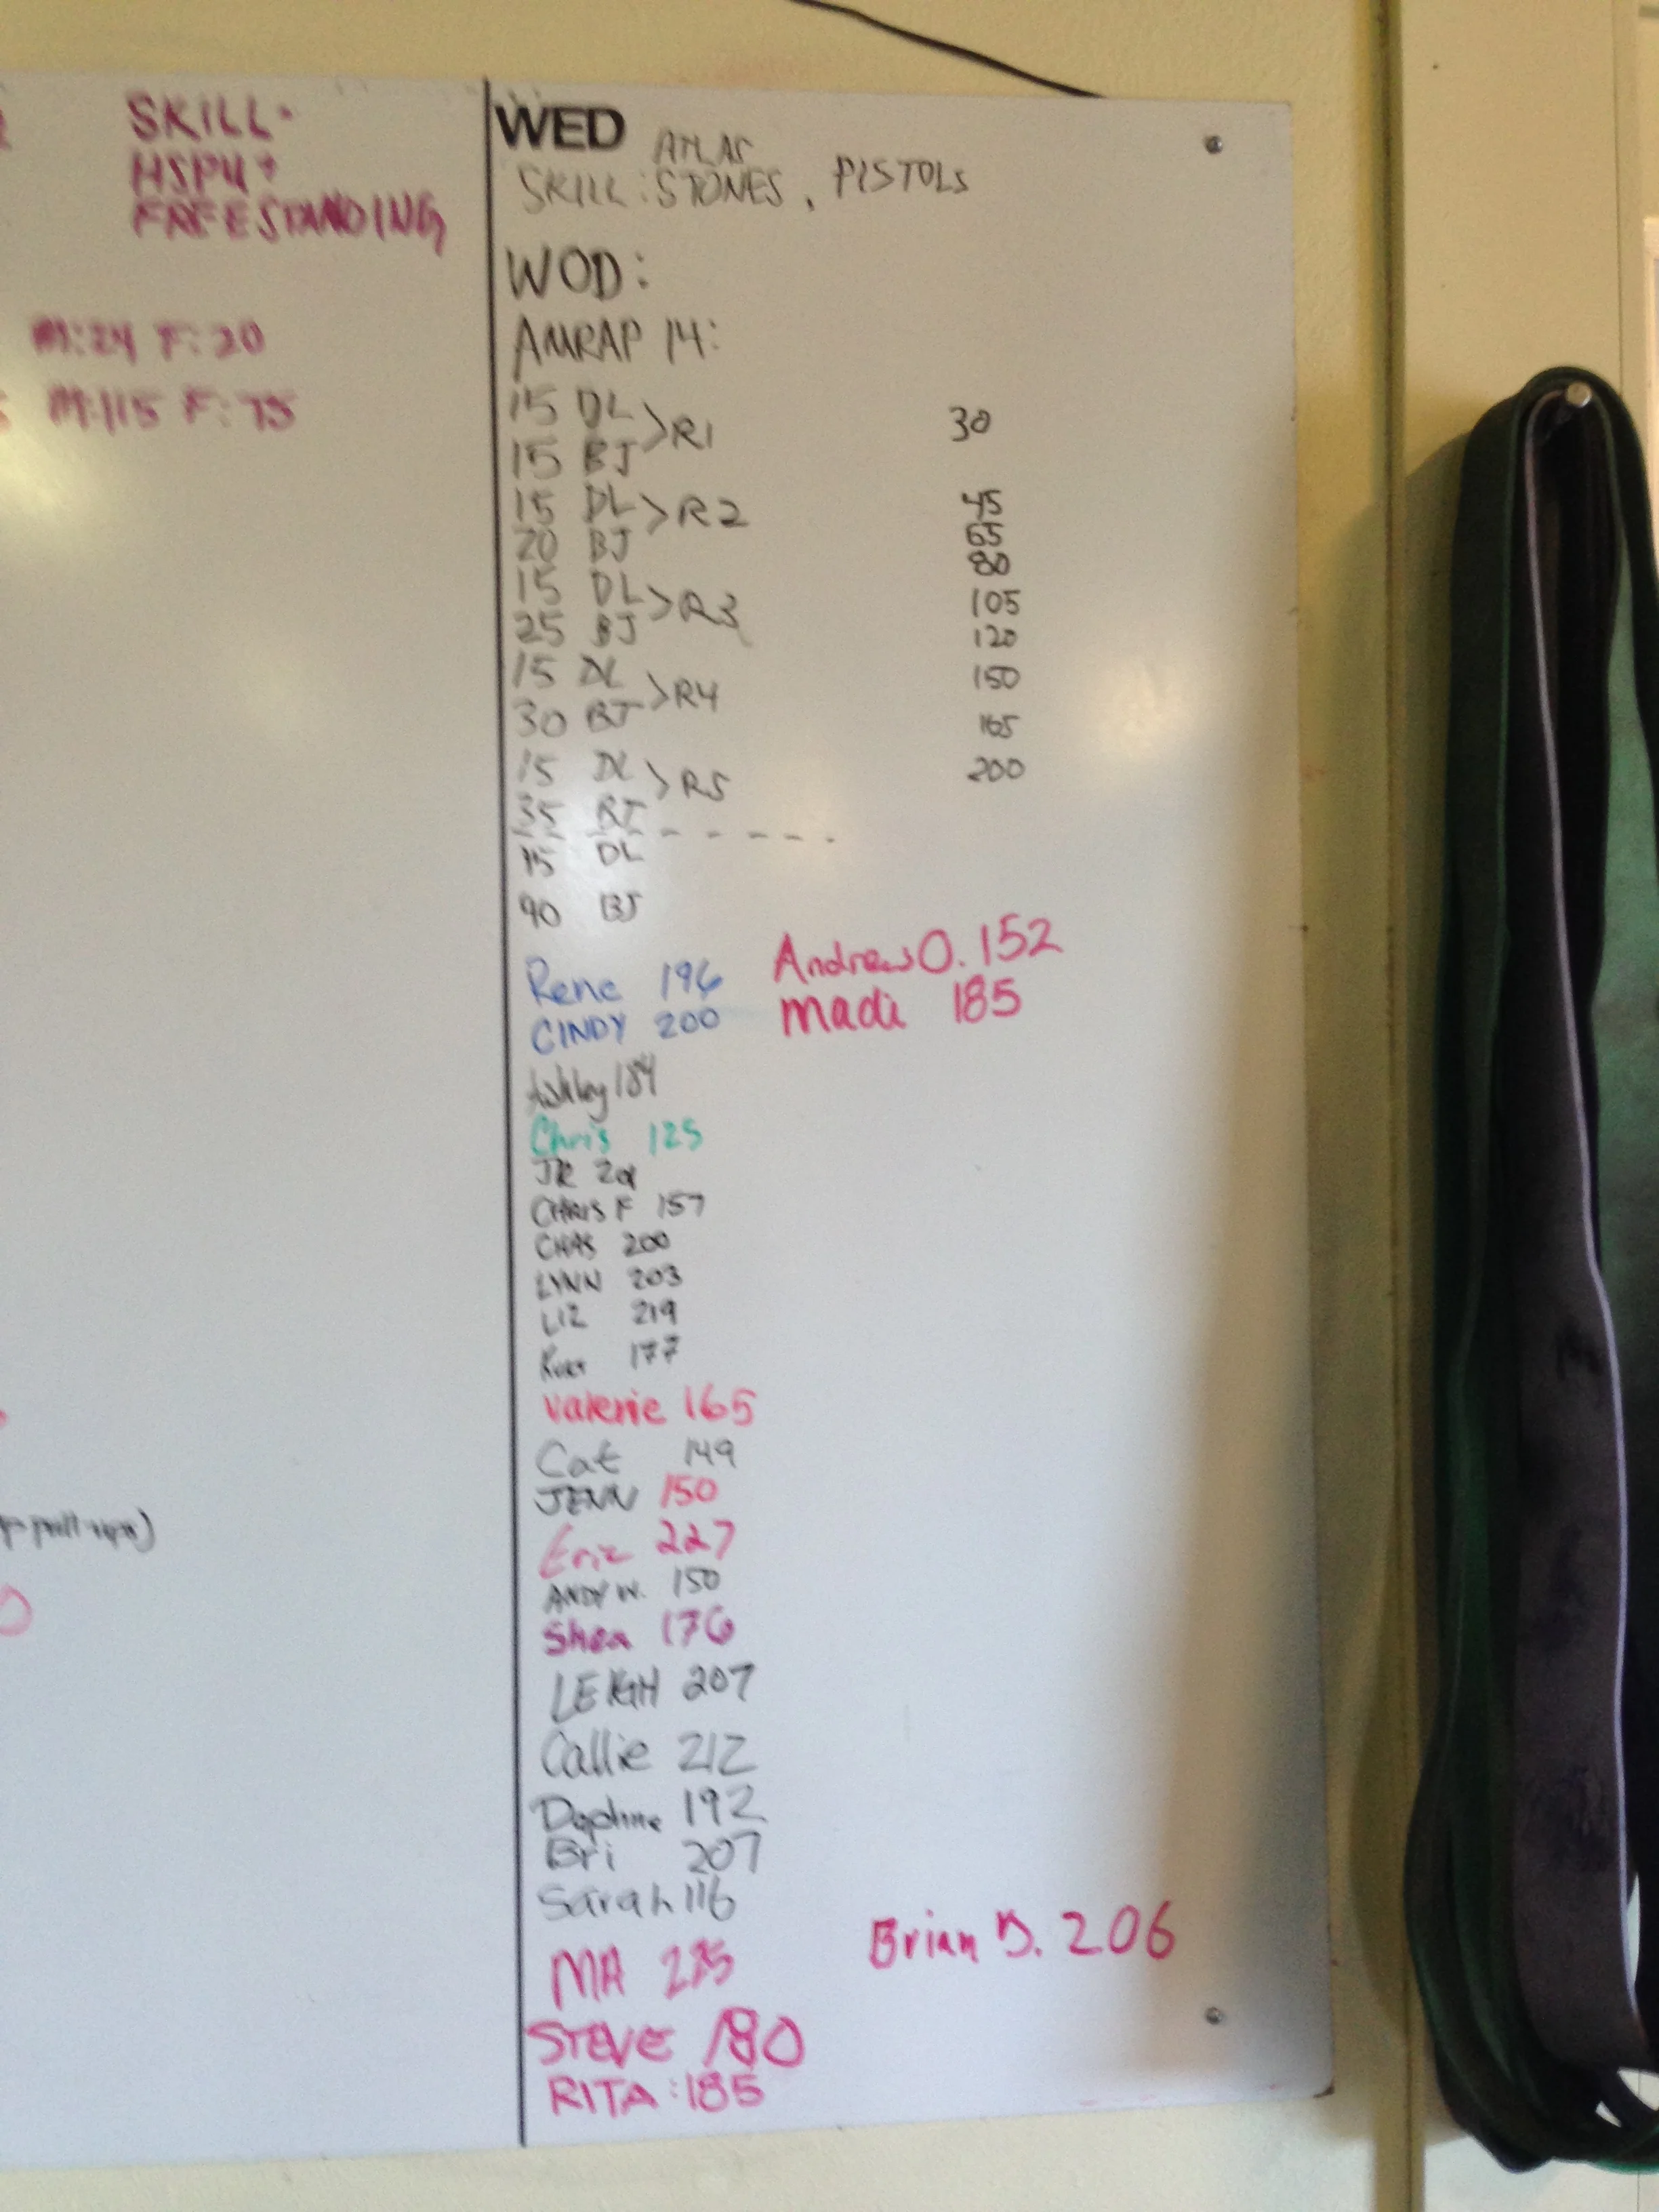 SKILL-
HSPU +
FREESTANDING
M:24 F:20
M:115 F:75
pull-ups)
WED
ATLAS
SKILL: STONES, PISTOLS
WOD:
AMRAP 14:
15 DL
15 BJ
>R1
30
15 DL
20 BJ
>R2
45
65
15 DL
25 BJ
>R3
80
105
15 DL
30 BJ
>R4
120
150
15 DL
35 BJ
>R5
165
200
15 DL
90 BJ
Rene 196
Andrew O. 152
CINDY 200
Madi 185
Ashley 184
Chris 125
JR
CHRIS F 157
CHAS 200
LYNN 203
LIZ 219
177
Valerie 165
Cat 149
JENN 150
Eric 227
ANDY W. 150
Shea 176
LEIGH 207
Callie 212
Daphne 192
Bri 207
Sarah 116
MA
Brian D. 206
STEVE 180
RITA: 185